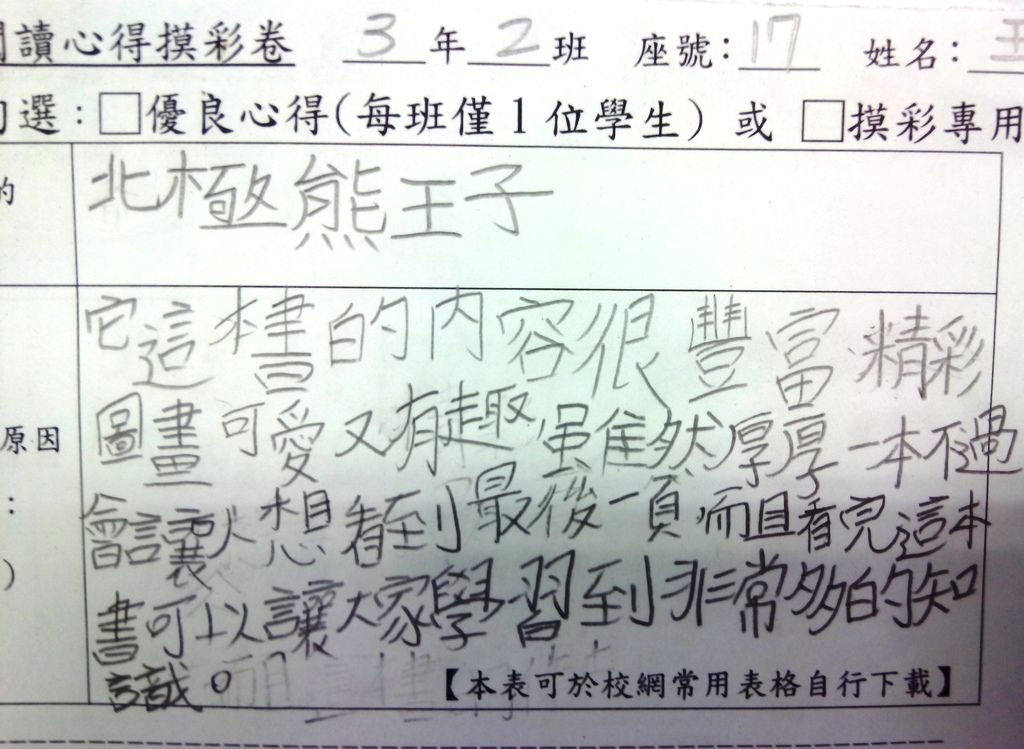 讀心得摸彩卷 3年2班 座號:17 姓名:王
選:□優良心得(每班僅1位學生) 或 □摸彩專用
的
北極熊王子
它這本書的內容很豐富精彩
圖畫可愛又有趣雖然厚厚一本不過
原因
會讓人想看到最後一頁,而且看完這本
:
書可以讓大家學習到非常多的知
)
識。
【本表可於校網常用表格自行下載】